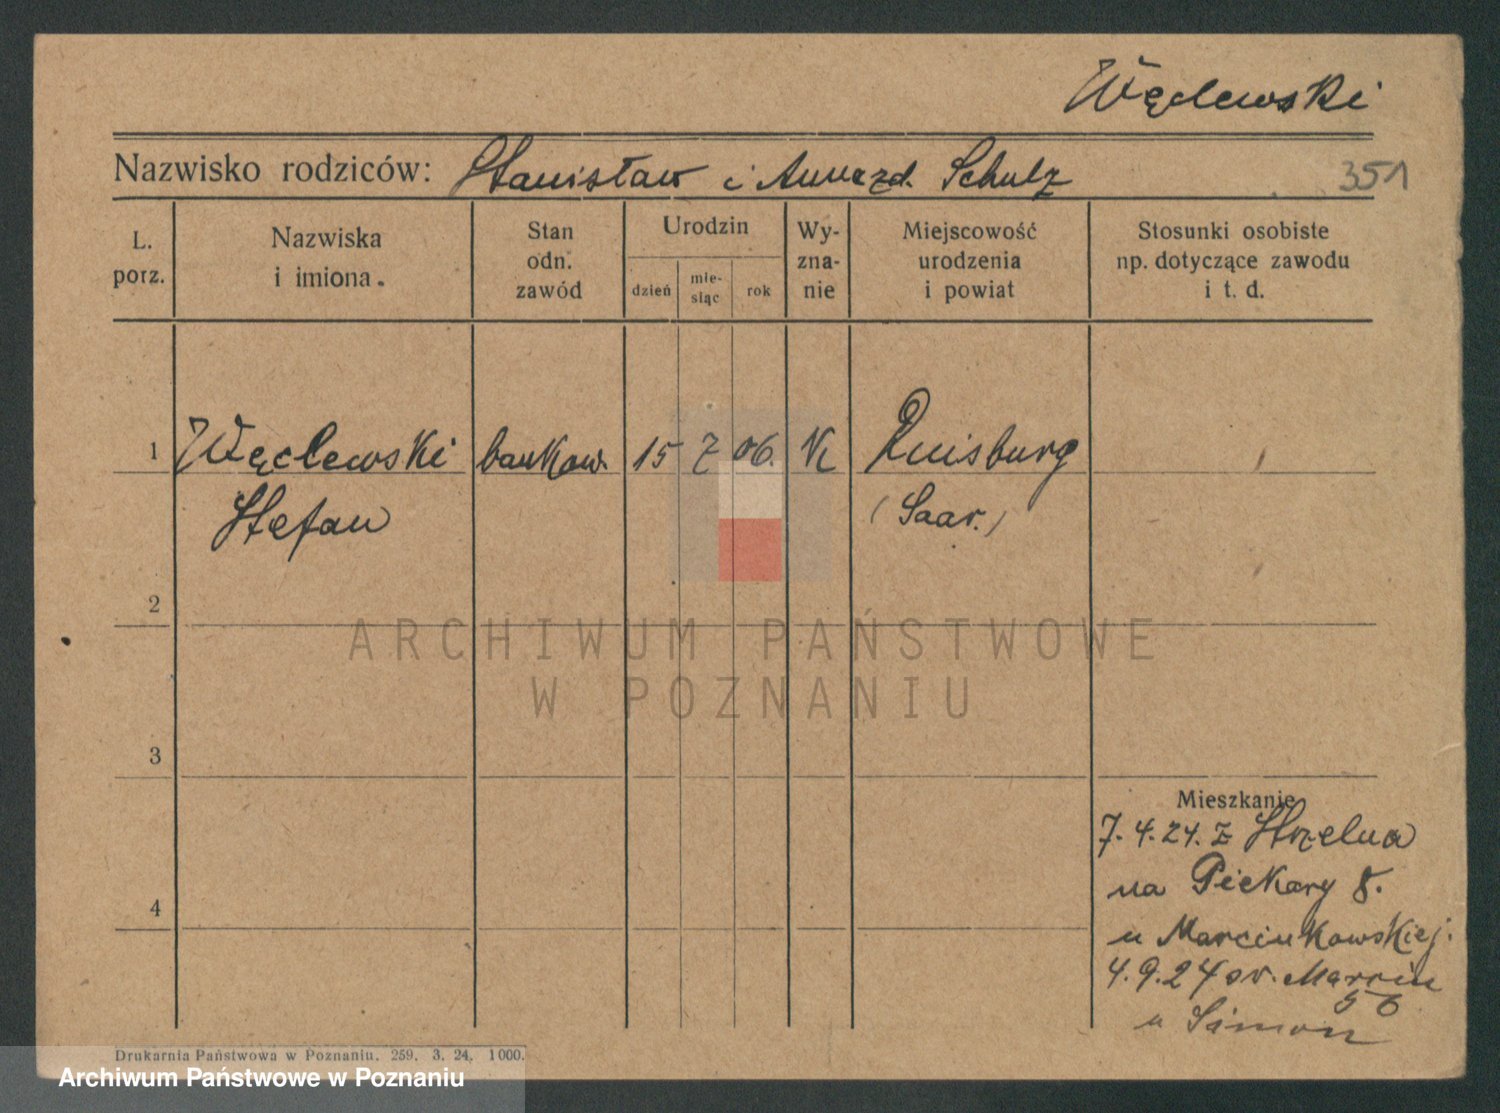 Węclewski
Nazwisko rodziców: Stanisław i Anna zd. Schulz 351
L. porz.
Nazwiska i imiona.
Stan odn. zawód
Urodzin
dzień
mie-
siąc
rok
Wy-
zna-
nie
Miejscowość
urodzenia
i powiat
Stosunki osobiste
np. dotyczące zawodu
i t. d.
1 Węclewski bankow. 15 7 06. K Duisburg
Stefan (Saar.)
2
ARCHIWUM PAŃSTWOWE
W POZNANIU
3
Mieszkanie
7.4.24. z Strzelna
na Piekary 8.
4
u Marcinkowskiej.
4.9.24 św. Marcin
56
u Simon
Drukarnia Państwowa w Poznaniu. 259. 3. 24. 1000.
Archiwum Państwowe w Poznaniu